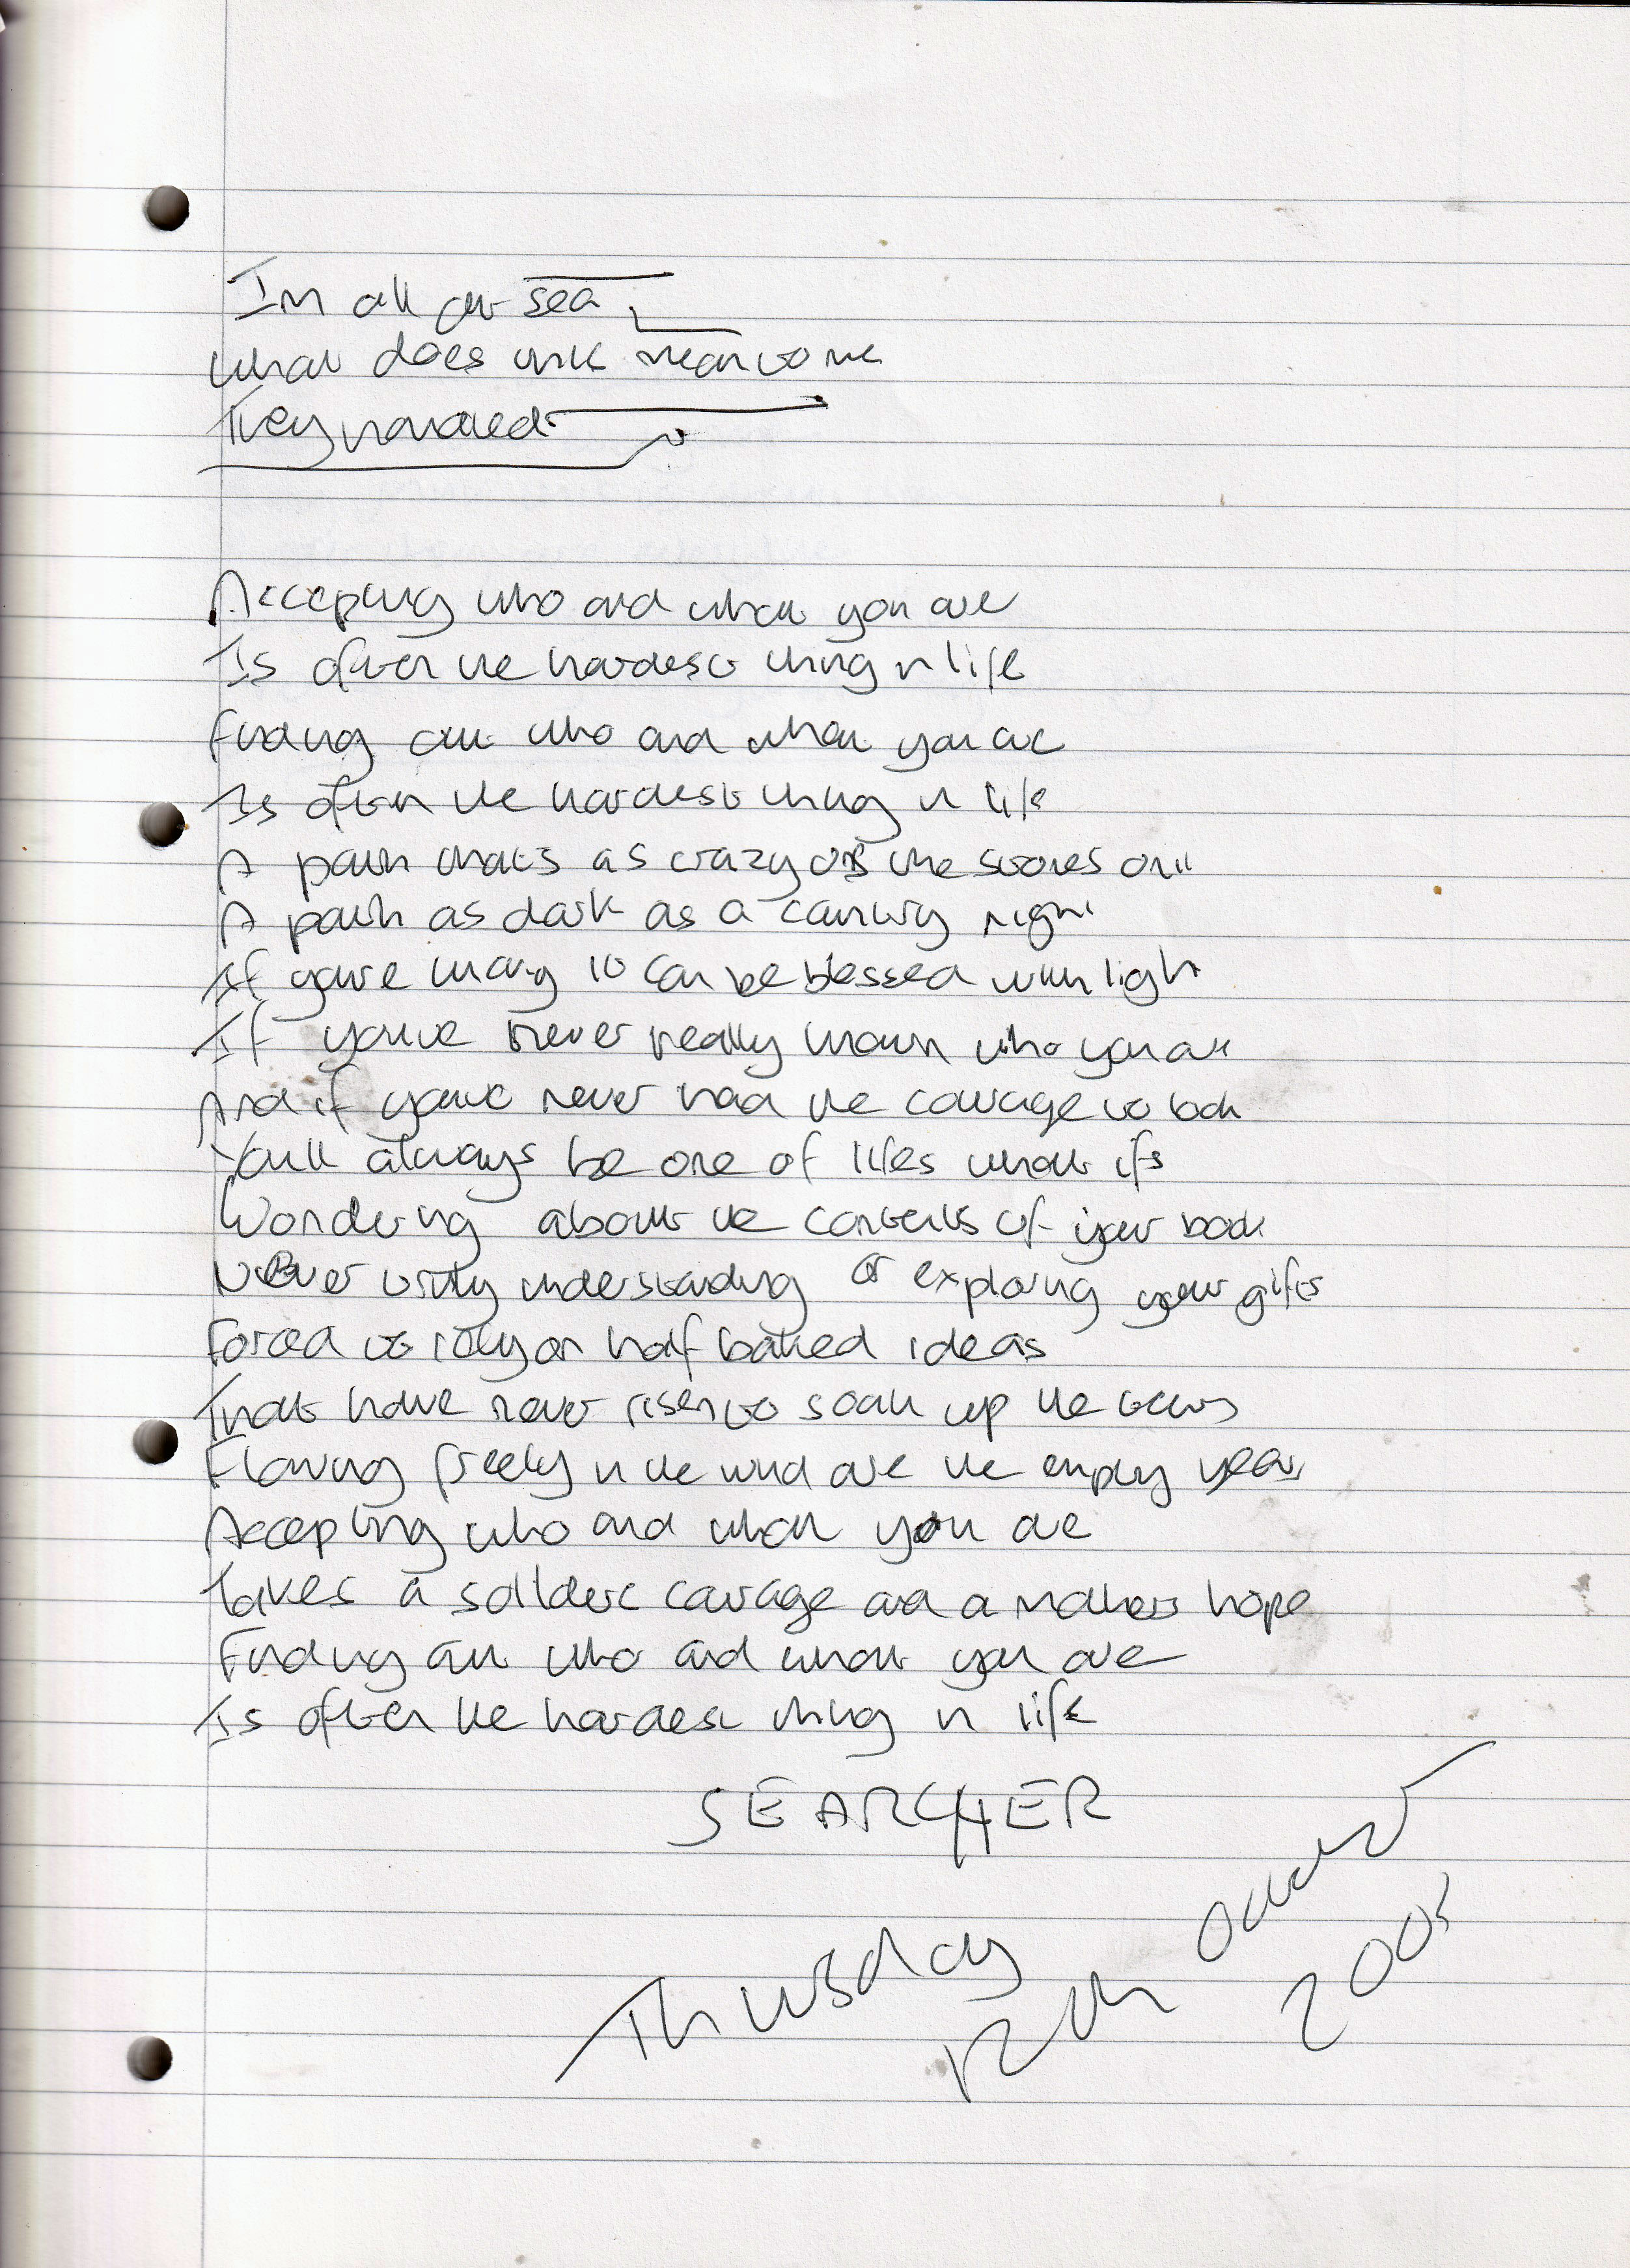 Im all at sea
What does this mean to me
They
Accepting who and what you are
Is often the hardest thing in life
Finding out who and what you are
Is often the hardest thing in life
A path thats as crazy as the stones on it
A path as dark as a country night
If youre lucky it can be blessed with light
If youve never really known who you are
And if youve never had the courage to look
Youll always be one of lifes what ifs
Wondering about the contents of your book
Never truly understanding or exploring your gifts
Forced to rely on half baked ideas
That have never risen to soak up the tears
Flowing freely in the wind are the empty years
Accepting who and what you are
Takes a soliders courage and a mothers hope
Finding out who and what you are
Is often the hardest thing in life
SEARCHER
Thursday
12th October
2005